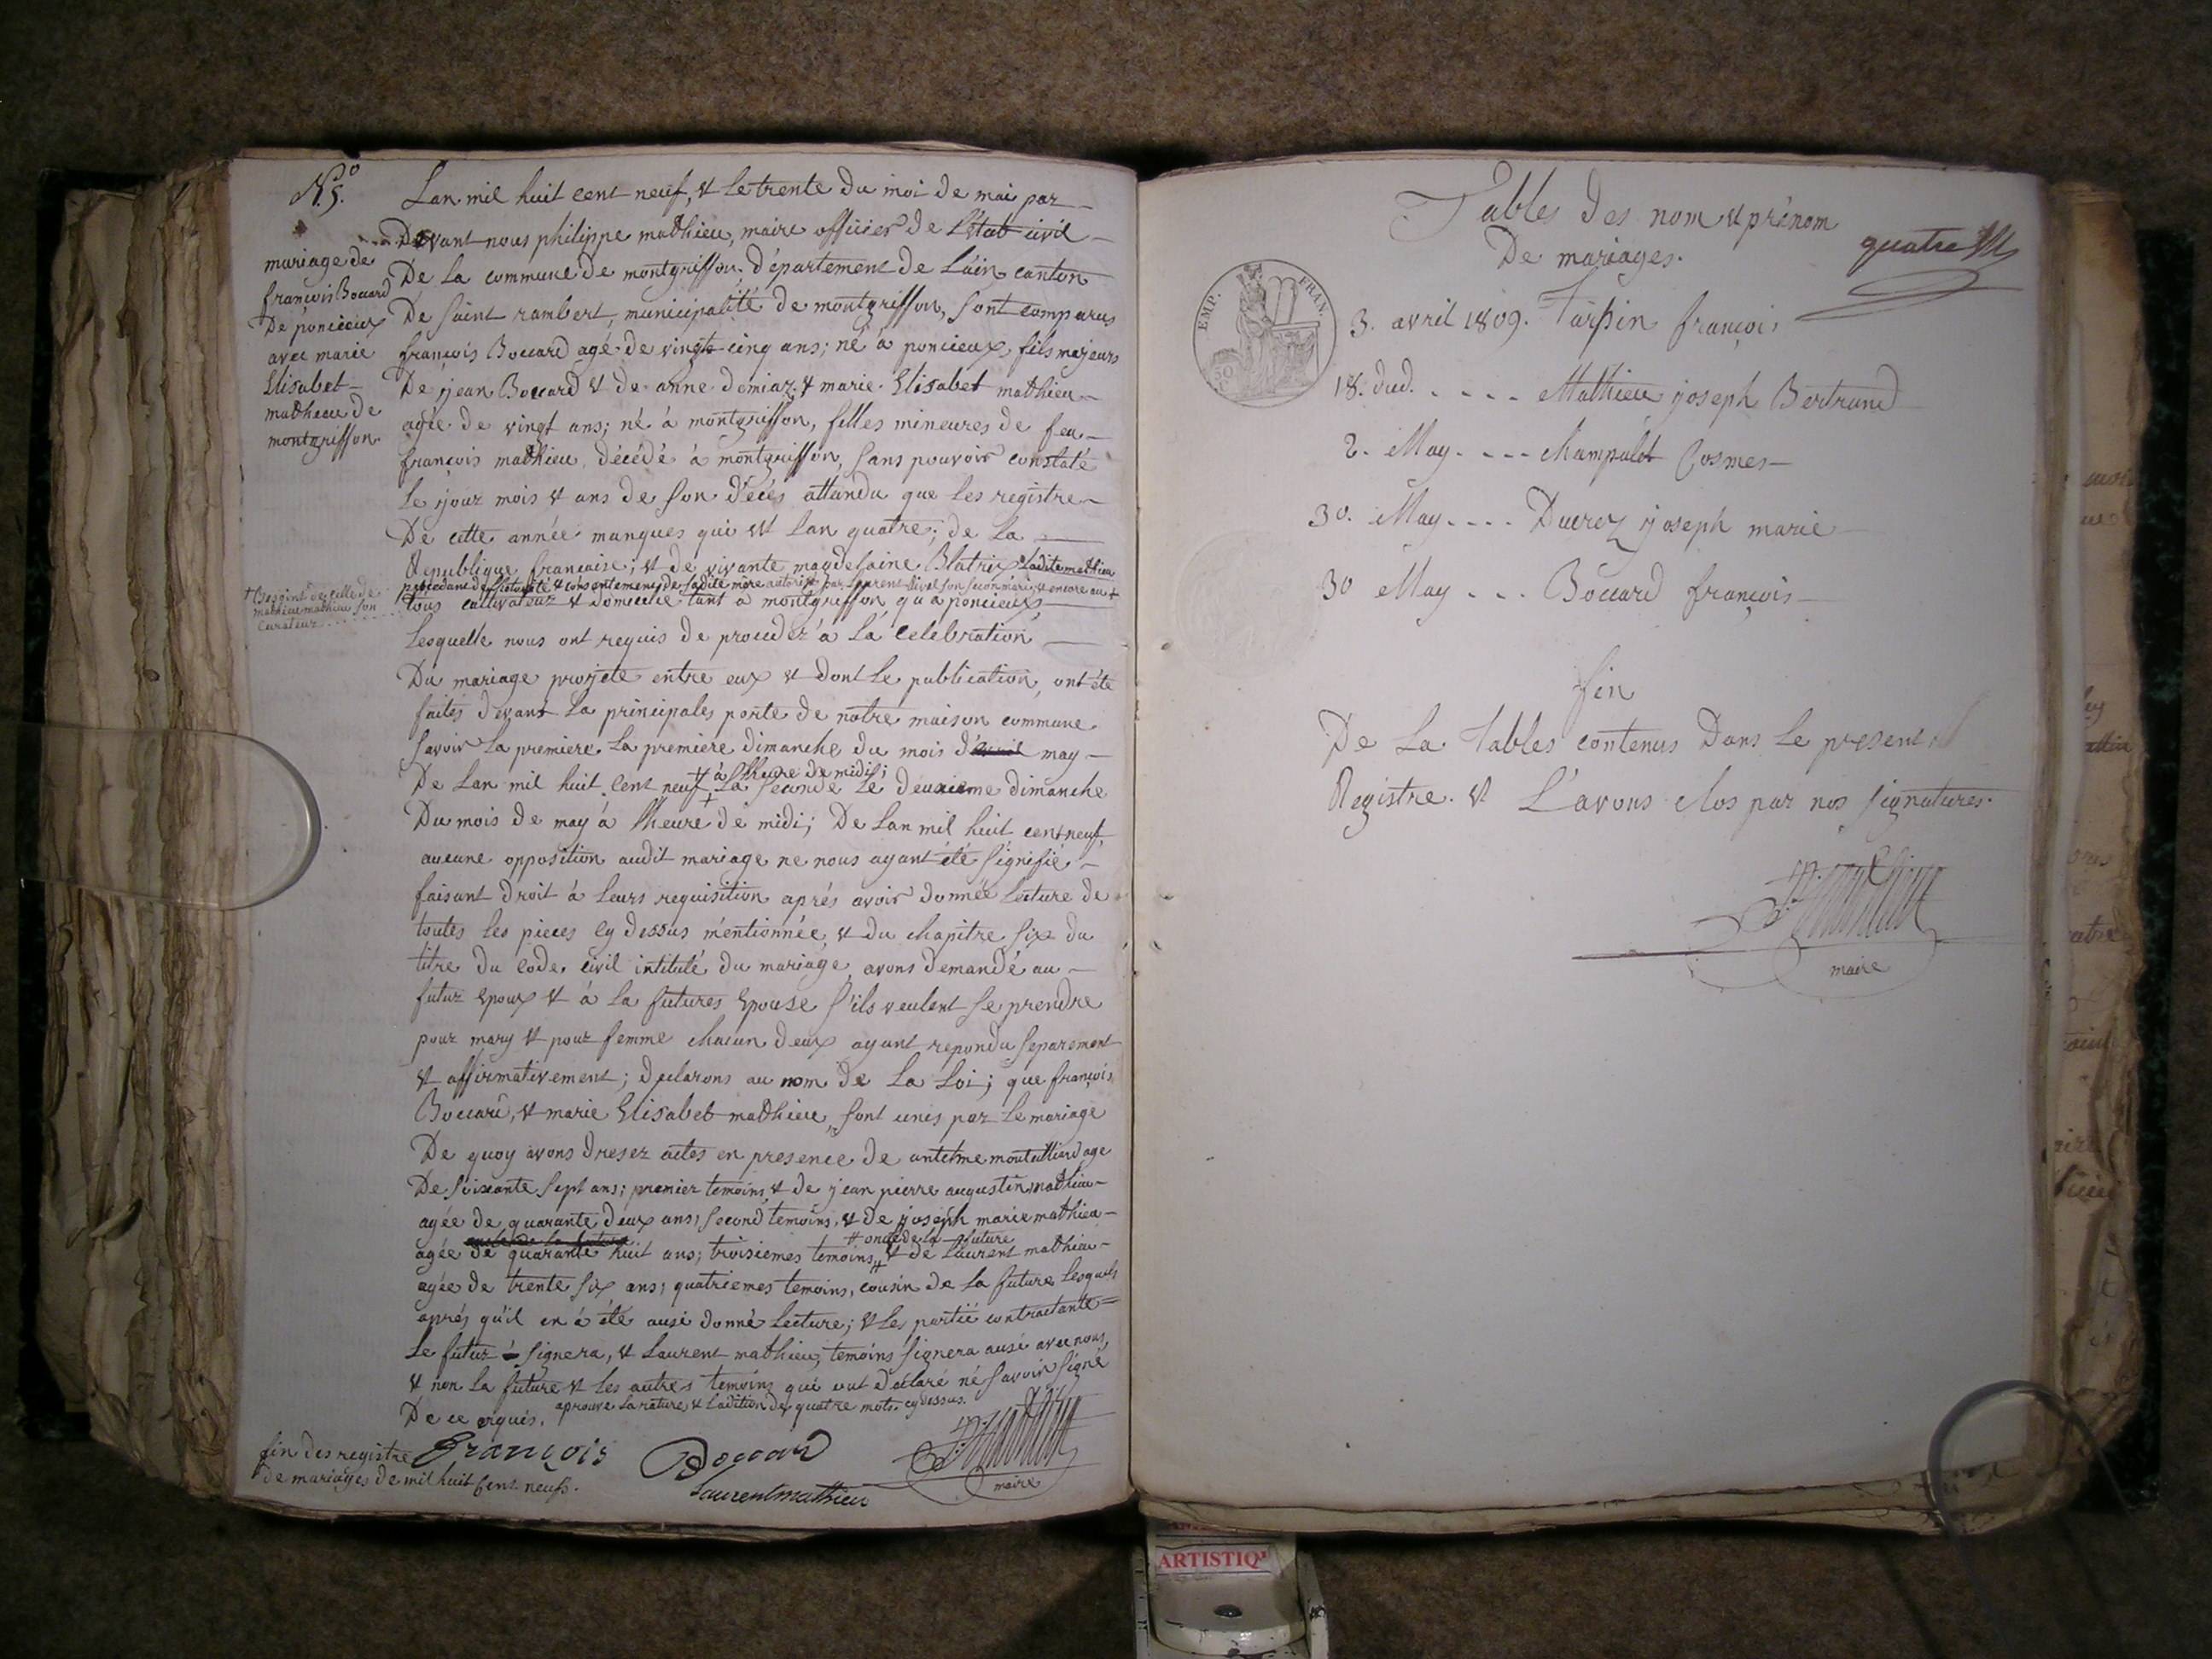 N.° 5.
mariage de
françois Boccard
De poncieux
avec marie
Elisabet
mathieu de
montgriffon.
Lan mil huit cent neuf, et le trente du moi de mai par
Devant nous philippe mathieu, maire officier de L'état civil
De La commune de montgriffon, département de L'ain canton
De Saint rambert, municipalité de montgriffon, Sont comparus
françois Boccard agé de vingt cinq ans; né à poncieux, fils majeurs
De jean Boccard et de anne demiaz, et marie Elisabet mathieu
agée de vingt ans; né à montgriffon, filles mineures de feu
françois mathieu, décédé à montgriffon, Sans pouvoir constaté
Le jour mois et ans de Son décés attandu que Les registre
De cette année manques qui est Lan quatre; de La
République française; et de vivante magdelaine Blatrix Ladite mathieu
procedant de L'autorité et consentement de Sadite mère autorisé par Laurent Son second mari, et encore au +
+ Besoint de celle de
mathieu mathieu Son
Curateur
tous cultivateur et domicilié tant à montgriffon qu'a poncieux
Lesquelle nous ont requis de proceder à La celebration
Du mariage projeté entre eux et dont Le publication, ont été
faites devant La principales porte de notre maison commune
Savoir La premiere La premiere dimanche du mois d'avril may
De Lan mil huit Cent neuf + La Seconde Le deuxieme dimanche
+ à L'heure de midi;
Du mois de may à L'heure de midi; De Lan mil huit cent neuf
aucune opposition audit mariage ne nous ayant été Signifié
faisant droit à Leurs requisition aprés avoir donnée Lecture de
toutes Les pieces Cy dessus mentionnée, et du chapitre Six du
titre du Code, Civil intitulé du mariage, avons demandé au
futur Epoux et à La futures Epouse S'ils veulent Se prendre
pour mary et pour femme chacun deux ayant repondu Separement
et affirmativement; declarons au nom de La Loi; que françois
Boccard, et marie Elisabet mathieu, Sont unis par Le mariage
De quoy avons dresez actes en presence de antelme moutalliard age
De Soixante Sept ans; premier temoins, et de jean pierre augustin mathieu
agée de quarante deux ans; Second temoins, et de joseph marie mathieu
agée de quarante huit ans; troisiemes temoins, # et de Laurent mathieu
# oncle de La future
agée de trente Six ans; quatriemes temoins, cousin de La future Lesquels
aprés qu'il en à été ausi donné Lecture; et Les partié contractante
Le futur Signera, et Laurent mathieu, temoins Signera ausi avec nous,
et non La future et Les autres temoins qui ont declaré né Savoir Signé
De ce erquis. aprouve La rature, et L'adition de quatre mots cy dessus.
François Boccard
Laurent mathieu
P. mathieu
maire
fin des registre
de mariages de mil huit Cent neufs.
Tables des nom et prénom
De mariages.
quatre
EMP. FRAN.
3. avril 1809. Tarpin françois
18. dud. . . . . . Mathieu joseph Bertrand
2. May. . . . Champalet Cosmes
30. May. . . . Ducroz joseph marie
30 May . . . Boccard françois
fin
De La Tables contenus Dans Le present
Registre. et L'avons clos par nos Signatures.
P. mathieu
maire
ARTISTIQ